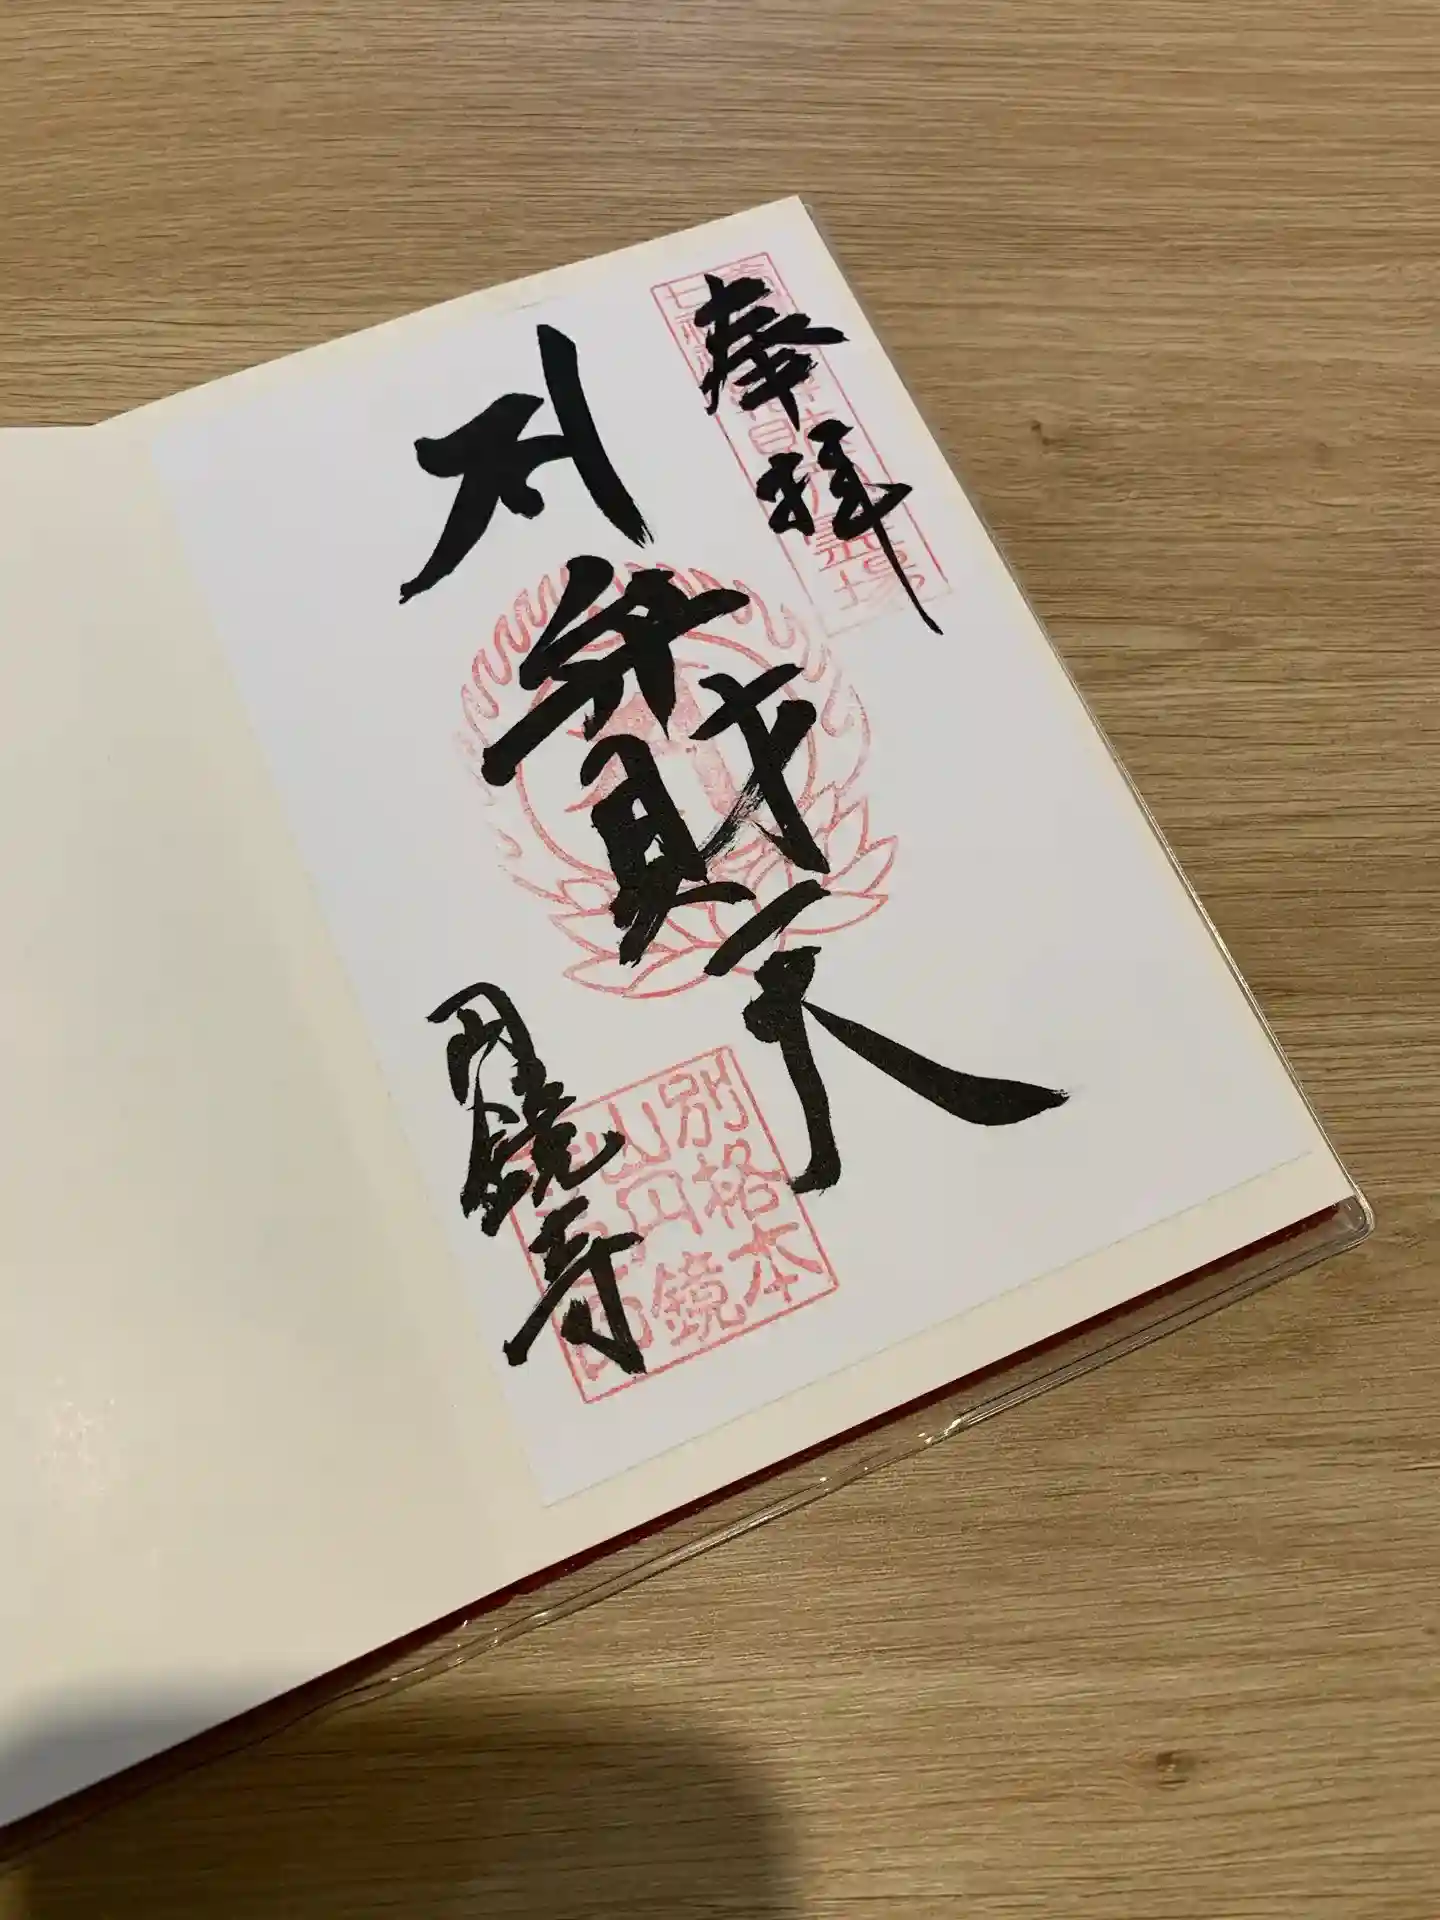 奉拝
弁財天
円鏡寺
別格本
山円鏡